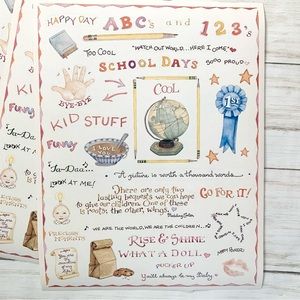 HAPPY DAY
ABC's and 123's
TOO COOL
"WATCH OUT WORLD... HERE I COME"
SCHOOL DAYS
SOOO PROUD
BYE-BYE
COOL
1ST
KID STUFF
Funny
Funny
I Love You
"Ta-Daa...
LOOK AT ME!
"Ta-Da
LOOK AT
A picture is worth a thousand words...
There are only two
lasting bequests we can hope
to give our children. One of these
is roots; the other, wings.
Hodding Carter
GO FOR IT!
PRECIOUS
MOMENTS
WE ARE THE WORLD, WE ARE THE CHILDREN...
RISE & SHINE
WHAT A DOLL
PUCKER UP
You'll always be my Baby